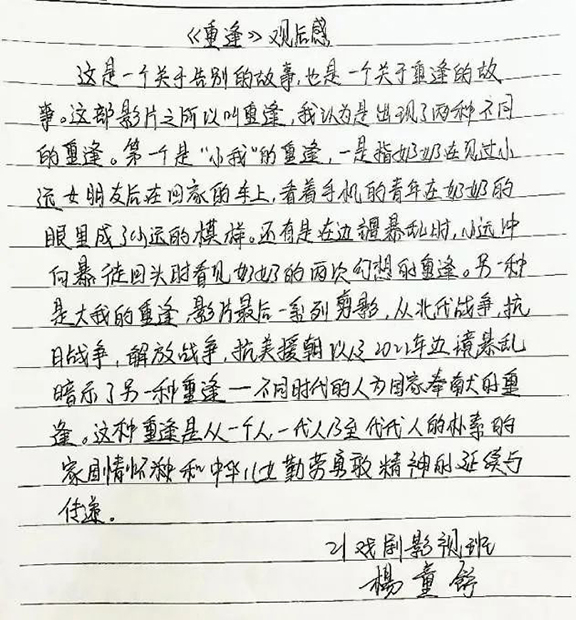 《重逢》观后感
这是一个关于告别的故事,也是一个关于重逢的故
事。这部影片之所以叫重逢,我认为是出现了两种不同
的重逢。第一个是"小我"的重逢,一是指奶奶在见过小
远女朋友后在回家的车上,看着手机的青年在奶奶的
眼里成了小远的模样。还有是在边疆暴乱时,小远冲
向暴徒回头时看见奶奶的两次幻想的重逢。另一种
是大我的重逢,影片最后一系列剪影,从北伐战争,抗
日战争,解放战争,抗美援朝以及2021年边境暴乱
暗示了另一种重逢一不同时代的人为国家奉献的重
逢。这种重逢是从一个人,一代人乃至代代人的朴素的
家国情怀和中华儿女勤劳勇敢精神的延续与
传递。
21戏剧影视班
杨童舒